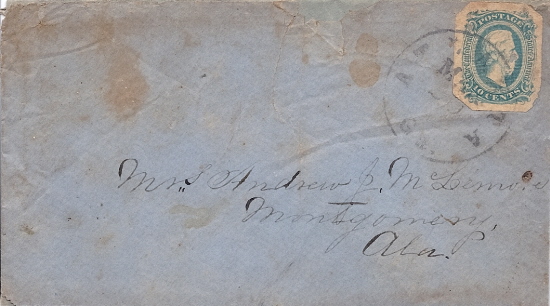 POSTAGE
10 CENTS
Mrs Andrew J. McLemore
Montgomery,
Ala.